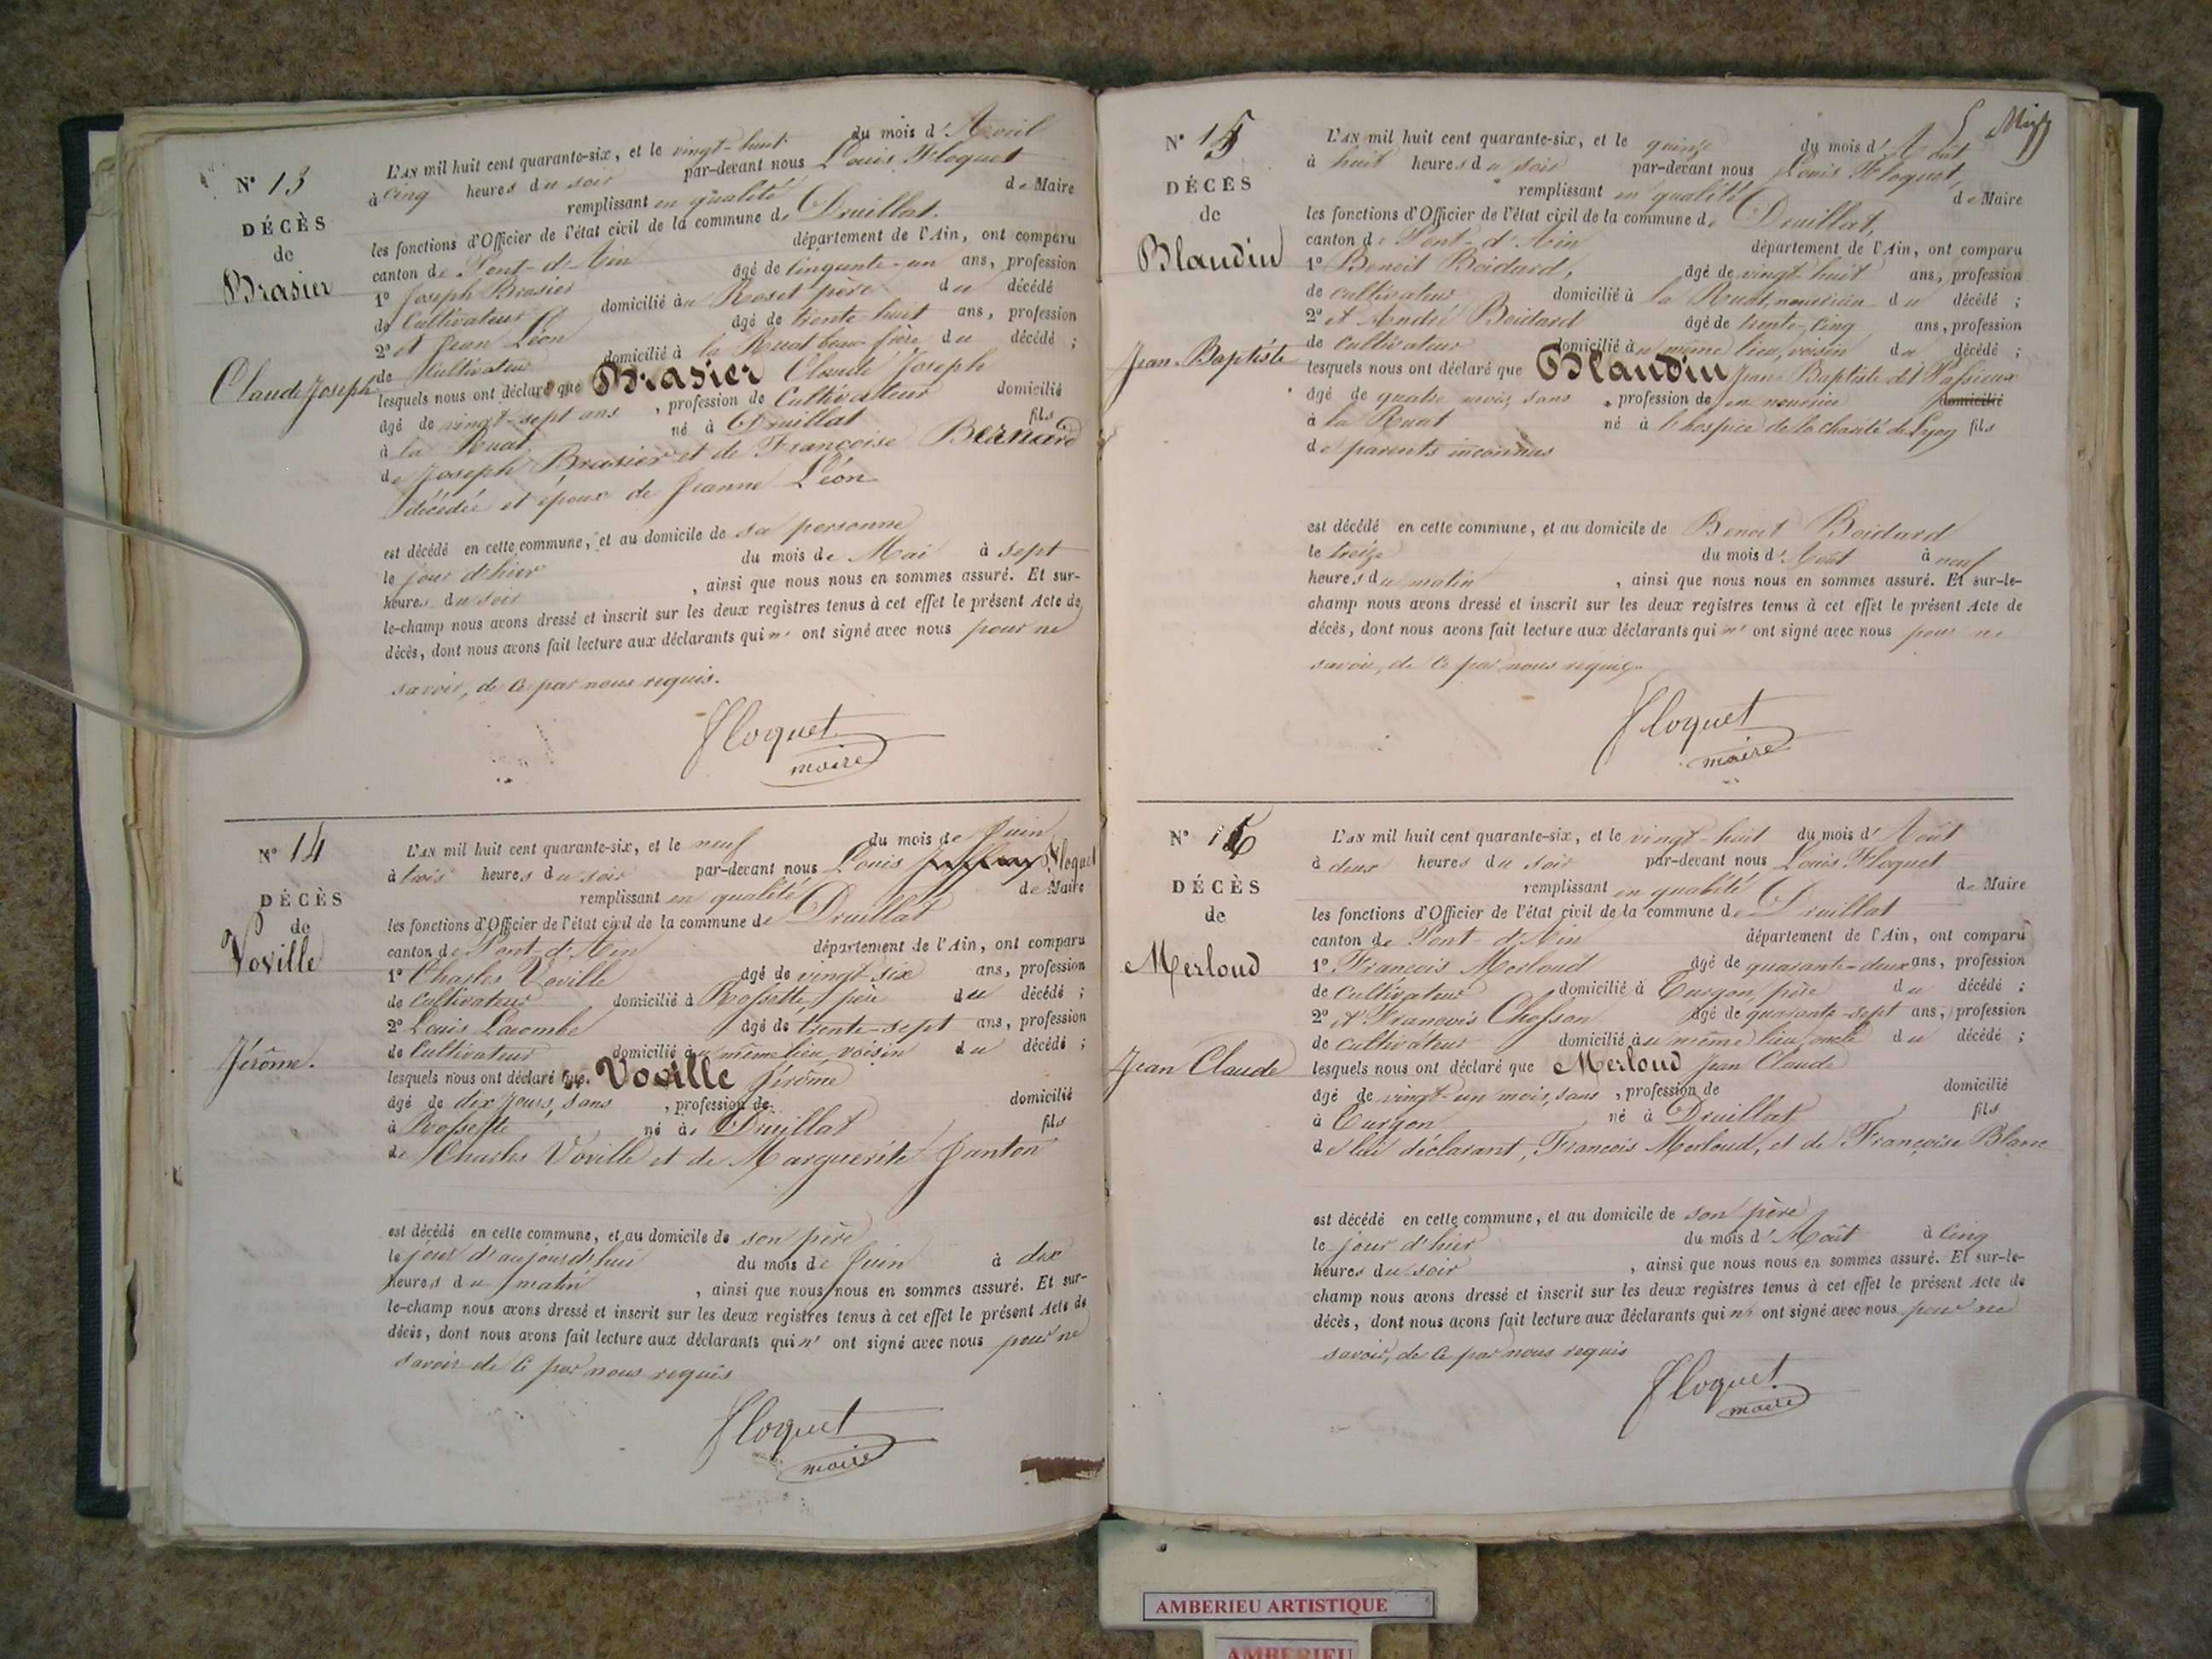 N° 13
DÉCÈS
de
Brasier
Claude Joseph
L'AN mil huit cent quarante-six, et le vingt-huit du mois d'Avril
à cinq heures du soir par-devant nous Louis Floquet
remplissant en qualité de Maire
les fonctions d'Officier de l'état civil de la commune de Druillat.
canton de Pont-d'Ain département de l'Ain, ont comparu
1° Joseph Brasier âgé de Cinquante-un ans, profession
de Cultivateur domicilié au Roset père du décédé
2° et Jean Léon âgé de trente-huit ans, profession
de Cultivateur domicilié à la Ruat beau-frère du décédé ;
lesquels nous ont déclaré que Brasier Claude Joseph
âgé de vingt-sept ans, profession de Cultivateur domicilié
à la Ruat né à Druillat fils
de Joseph Brasier et de Françoise Bernard
décédée et époux de Jeanne Léon
est décédé en cette commune, et au domicile de sa personne
le jour d'hier du mois de Mai à sept
heures du soir, ainsi que nous nous en sommes assuré. Et sur-
le-champ nous avons dressé et inscrit sur les deux registres tenus à cet effet le présent Acte de
décès, dont nous avons fait lecture aux déclarants qui n' ont signé avec nous pour ne
savoir, de ce par nous requis.
Floquet
maire
N° 14
DÉCÈS
de
Voville
Jérôme.
L'AN mil huit cent quarante-six, et le neuf du mois de Juin
à trois heures du soir par-devant nous Louis Floquet
remplissant en qualité de Maire
les fonctions d'Officier de l'état civil de la commune de Druillat
canton de Pont-d'Ain département de l'Ain, ont comparu
1° Charles Voville âgé de vingt-six ans, profession
de Cultivateur domicilié à Rossette, père du décédé ;
2° Louis Lacombe âgé de trente-sept ans, profession
de Cultivateur domicilié au même lieu voisin du décédé ;
lesquels nous ont déclaré que Voville Jérôme
âgé de dix jours, sans, profession de domicilié
à Rossette né à Druillat fils
de Charles Voville et de Marguerite Janton
est décédé en cette commune, et au domicile de son père
le jour d'aujourd'hui du mois de Juin à dix
heures du matin, ainsi que nous nous en sommes assuré. Et sur-
le-champ nous avons dressé et inscrit sur les deux registres tenus à cet effet le présent Acte de
décès, dont nous avons fait lecture aux déclarants qui n' ont signé avec nous pour ne
savoir de ce par nous requis
Floquet
maire
N° 15
DÉCÈS
de
Blandin
Jean-Baptiste
L'AN mil huit cent quarante-six, et le quinze du mois d'Août
à huit heures du soir par-devant nous Louis Floquet,
remplissant en qualité de Maire
les fonctions d'Officier de l'état civil de la commune de Druillat,
canton de Pont-d'Ain département de l'Ain, ont comparu
1° Benoit Boidard, âgé de vingt huit ans, profession
de cultivateur domicilié à la Ruat, nourricier du décédé ;
2° et André Boidard âgé de trente-cinq ans, profession
de cultivateur domicilié au même lieu, voisin du décédé ;
lesquels nous ont déclaré que Blandin Jean-Baptiste dit Passieux
âgé de quatre mois, sans, profession de en nourrice domicilié
à la Ruat né à l'hospice de la charité de Lyon fils
de parents inconnus
est décédé en cette commune, et au domicile de Benoit Boidard
le treize du mois d'Août à neuf
heures du matin, ainsi que nous nous en sommes assuré. Et sur-le-
champ nous avons dressé et inscrit sur les deux registres tenus à cet effet le présent Acte de
décès, dont nous avons fait lecture aux déclarants qui n' ont signé avec nous pour ne
savoir, de ce par nous requis.
Floquet
maire
N° 16
DÉCÈS
de
Merloud
Jean Claude
L'AN mil huit cent quarante-six, et le vingt-huit du mois d'Août
à deux heures du soir par-devant nous Louis Floquet
remplissant en qualité de Maire
les fonctions d'Officier de l'état civil de la commune de Druillat
canton de Pont-d'Ain département de l'Ain, ont comparu
1° François Merloud âgé de quarante-deux ans, profession
de Cultivateur domicilié à Turgon, père du décédé ;
2° et François Chosson âgé de quarante-sept ans, profession
de cultivateur domicilié au même lieu, oncle du décédé ;
lesquels nous ont déclaré que Merloud Jean Claude
âgé de vingt-un mois, sans, profession de domicilié
à Turgon né à Druillat fils
de lui déclarant, François Merloud, et de Françoise Blanc
est décédé en cette commune, et au domicile de son père
le jour d'hier du mois d'Août à cinq
heures du soir, ainsi que nous nous en sommes assuré. Et sur-le-
champ nous avons dressé et inscrit sur les deux registres tenus à cet effet le présent Acte de
décès, dont nous avons fait lecture aux déclarants qui n' ont signé avec nous pour ne
savoir, de ce par nous requis
Floquet
maire
AMBERIEU ARTISTIQUE
AMBERIEU